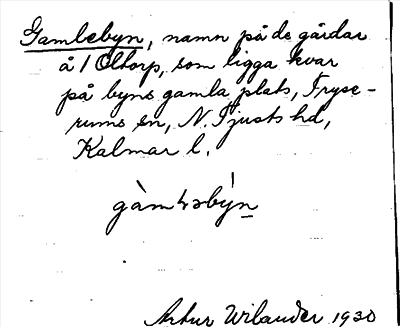 Gamlebyn, namn på de gårdar
å 1 Oltorp, som ligga kvar
på byns gamla plats, Fryse-
rums sn, N. Tjusts hd,
Kalmar l.
Artur Wilander 1930